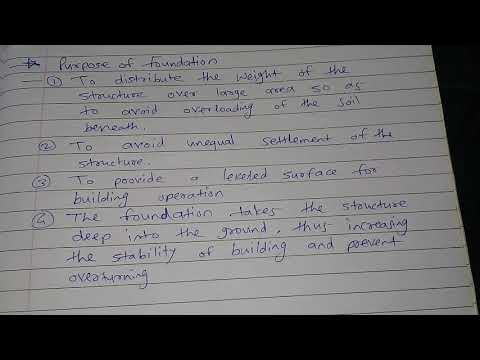 Purpose of foundation
① To distribute the weight of the
structure over large area so as
to avoid overloading of the soil
beneath.
② To avoid unequal settlement of the
structure.
③ To provide a leveled surface for
building operation
③ The foundation takes the structure
deep into the ground, thus increasing
the stability of building and prevent
overturning